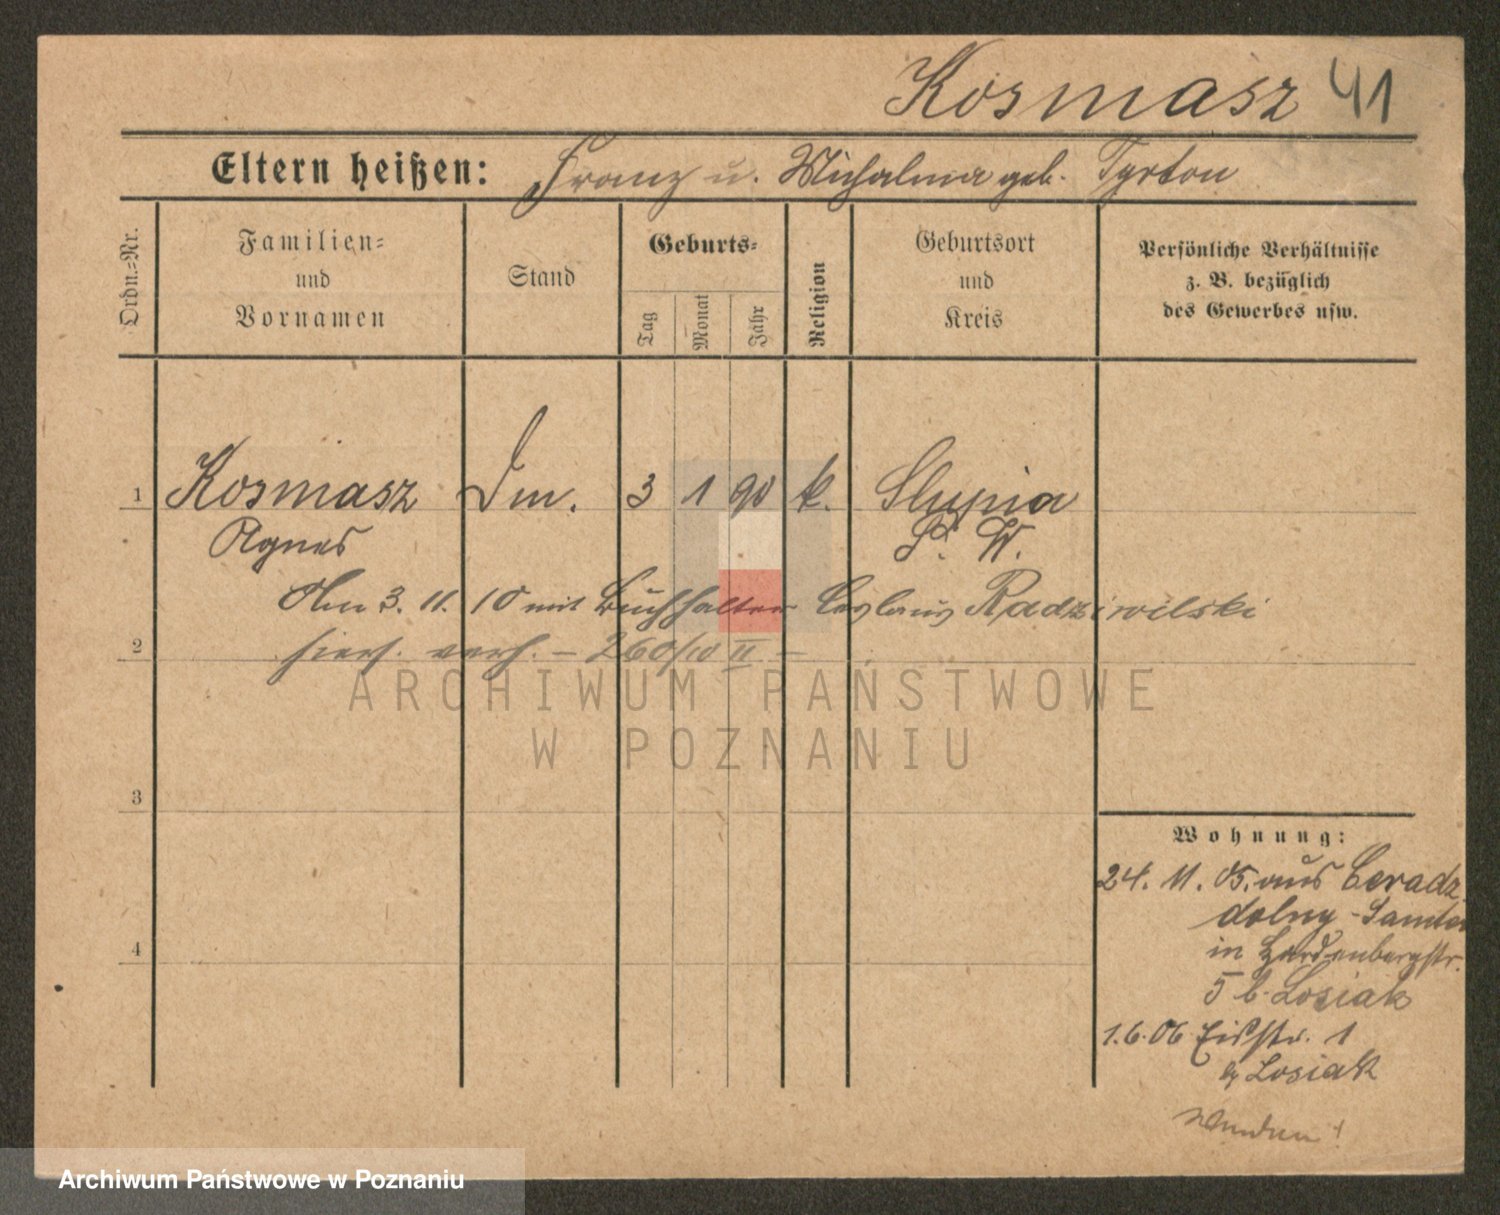 Kosmasz 41
Eltern heißen: Franz u. Michalina geb. Tyrton
Ordn.-Nr.
Familien-
und
Vornamen
Stand
Geburts-
Tag
Monat
Jahr
Religion
Geburtsort
und
Kreis
Persönliche Verhältnisse
z. B. bezüglich
des Gewerbes usw.
1 Kosmasz Dm. 3 1 90 k. Slupia
Agnes P. W.
Am 3. 11. 10 mit Buchhalter Ceslaus Radziwilski
2
hiers. verh. – 260/10 II –
ARCHIWUM PAŃSTWOWE
W POZNANIU
3
4
Wohnung:
24. 11. 05. aus Ceradz
dolny - Samter
in Hardenbergstr.
5 b. Losiak
1. 6. 06 Eichstr. 1
b. Losiak
Wenden!
Archiwum Państwowe w Poznaniu